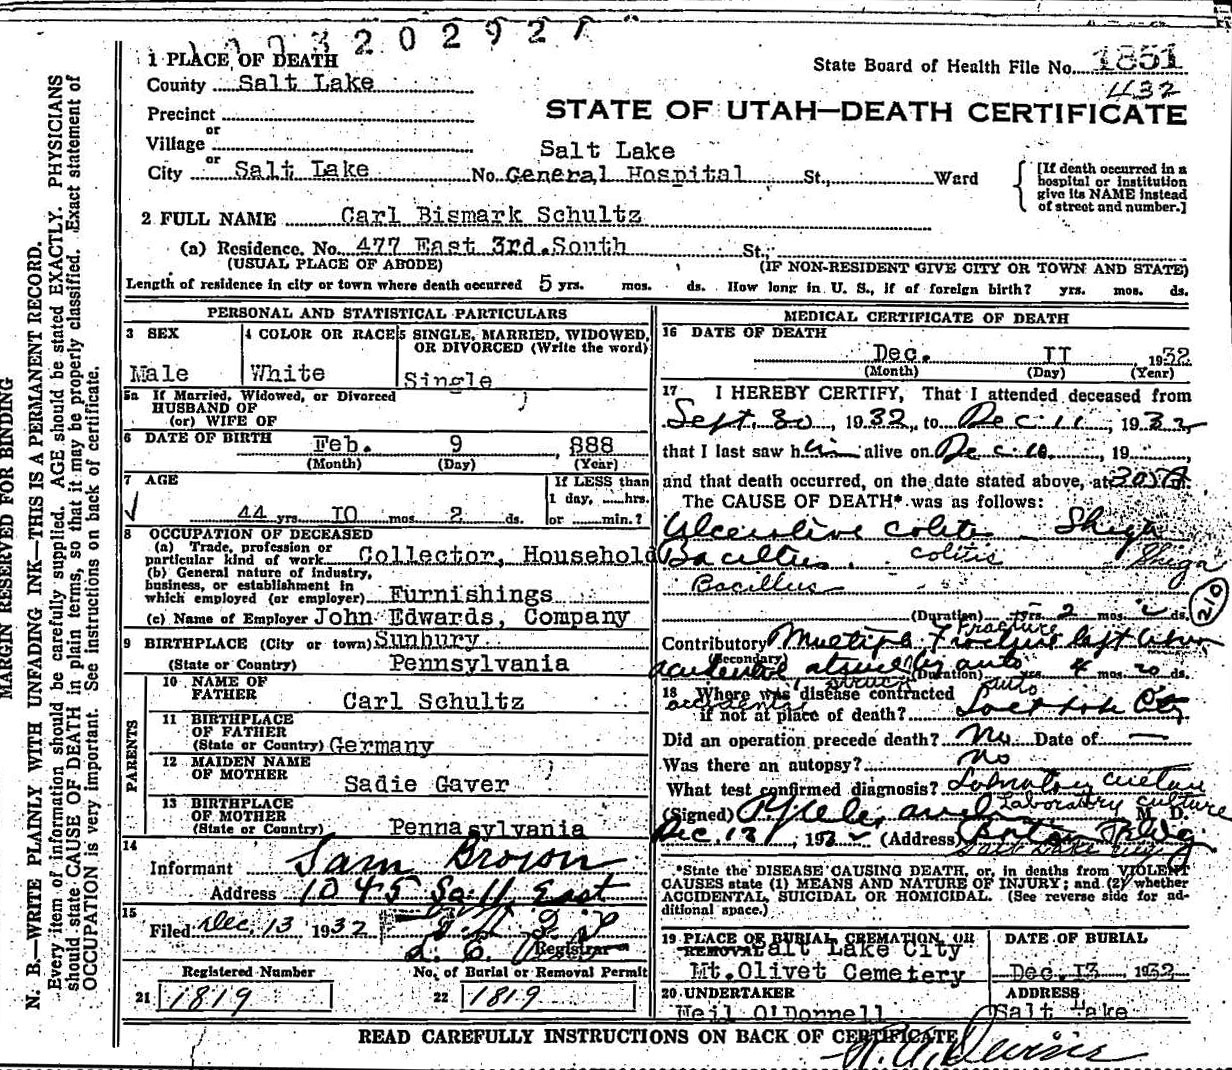 3202927
1 PLACE OF DEATH
County Salt Lake
State Board of Health File No. 1851
432
Precinct
STATE OF UTAH—DEATH CERTIFICATE
or
Village
Salt Lake
or
City Salt Lake No. General Hospital St., Ward
[If death occurred in a hospital or institution give its NAME instead of street and number.]
2 FULL NAME Carl Bismark Schultz
(a) Residence. No. 477 East 3rd. South St.,
(USUAL PLACE OF ABODE) (IF NON-RESIDENT GIVE CITY OR TOWN AND STATE)
Length of residence in city or town where death occurred 5 yrs. mos. ds. How long in U. S., if of foreign birth? yrs. mos. ds.
PERSONAL AND STATISTICAL PARTICULARS
3 SEX
Male
4 COLOR OR RACE
White
5 SINGLE, MARRIED, WIDOWED, OR DIVORCED (Write the word)
Single
5a If Married, Widowed, or Divorced
HUSBAND OF
(or) WIFE OF
6 DATE OF BIRTH Feb. 9, 888
(Month) (Day) (Year)
7 AGE
44 yrs. IO mos. 2 ds.
If LESS than
1 day, hrs.
or min.?
8 OCCUPATION OF DECEASED
(a) Trade, profession or
particular kind of work Collector, Household
(b) General nature of industry,
business, or establishment in
which employed (or employer) Furnishings
(c) Name of Employer John Edwards, Company
9 BIRTHPLACE (City or town) Sunbury
(State or Country) Pennsylvania
PARENTS
10 NAME OF
FATHER Carl Schultz
11 BIRTHPLACE
OF FATHER
(State or Country) Germany
12 MAIDEN NAME
OF MOTHER Sadie Gaver
13 BIRTHPLACE
OF MOTHER
(State or Country) Pennasylvania
14
Informant Sam Brown
Address 1045 So. 11 East
15
Filed Dec, 13 1932
Registrar
Registered Number
21 1819
No. of Burial or Removal Permit
22 1819
MEDICAL CERTIFICATE OF DEATH
16 DATE OF DEATH
Dec. II 1932
(Month) (Day) (Year)
17 I HEREBY CERTIFY, That I attended deceased from
Sept. 30, 1932, to Dec. 11, 1932
that I last saw him alive on Dec. 10, 19
and that death occurred, on the date stated above, at
The CAUSE OF DEATH* was as follows:
Ulcerative colitis Shiga
Bacillus. colitis Shiga
Bacillus
210
(Duration) yrs. 2 mos. ds.
Contributory Multiple Fracture left
Fracture
(Secondary) accidental struck by auto (Duration) yrs. 4 mos. 20 ds.
struck auto
18 Where was disease contracted
accidental
if not at place of death? Salt Lake City
Did an operation precede death? No Date of —
Was there an autopsy? No
What test confirmed diagnosis? Laboratory culture
Laboratory culture
(Signed) M. D.
Dec. 13, 1932 (Address) Boston Bldg
Salt Lake City
*State the DISEASE CAUSING DEATH, or, in deaths from VIOLENT
CAUSES state (1) MEANS AND NATURE OF INJURY; and (2) whether
ACCIDENTAL, SUICIDAL OR HOMICIDAL. (See reverse side for ad-
ditional space.)
19 PLACE OF BURIAL, CREMATION, OR
REMOVAL Salt Lake City
Mt. Olivet Cemetery
DATE OF BURIAL
Dec. I3 1932
20 UNDERTAKER
Neil O'Donnell
ADDRESS
Salt Lake
READ CAREFULLY INSTRUCTIONS ON BACK OF CERTIFICATE
MARGIN RESERVED FOR BINDING
N. B.—WRITE PLAINLY WITH UNFADING INK—THIS IS A PERMANENT RECORD.
Every item of information should be carefully supplied. AGE should be stated EXACTLY. PHYSICIANS
should state CAUSE OF DEATH in plain terms, so that it may be properly classified. Exact statement of
OCCUPATION is very important. See instructions on back of certificate.